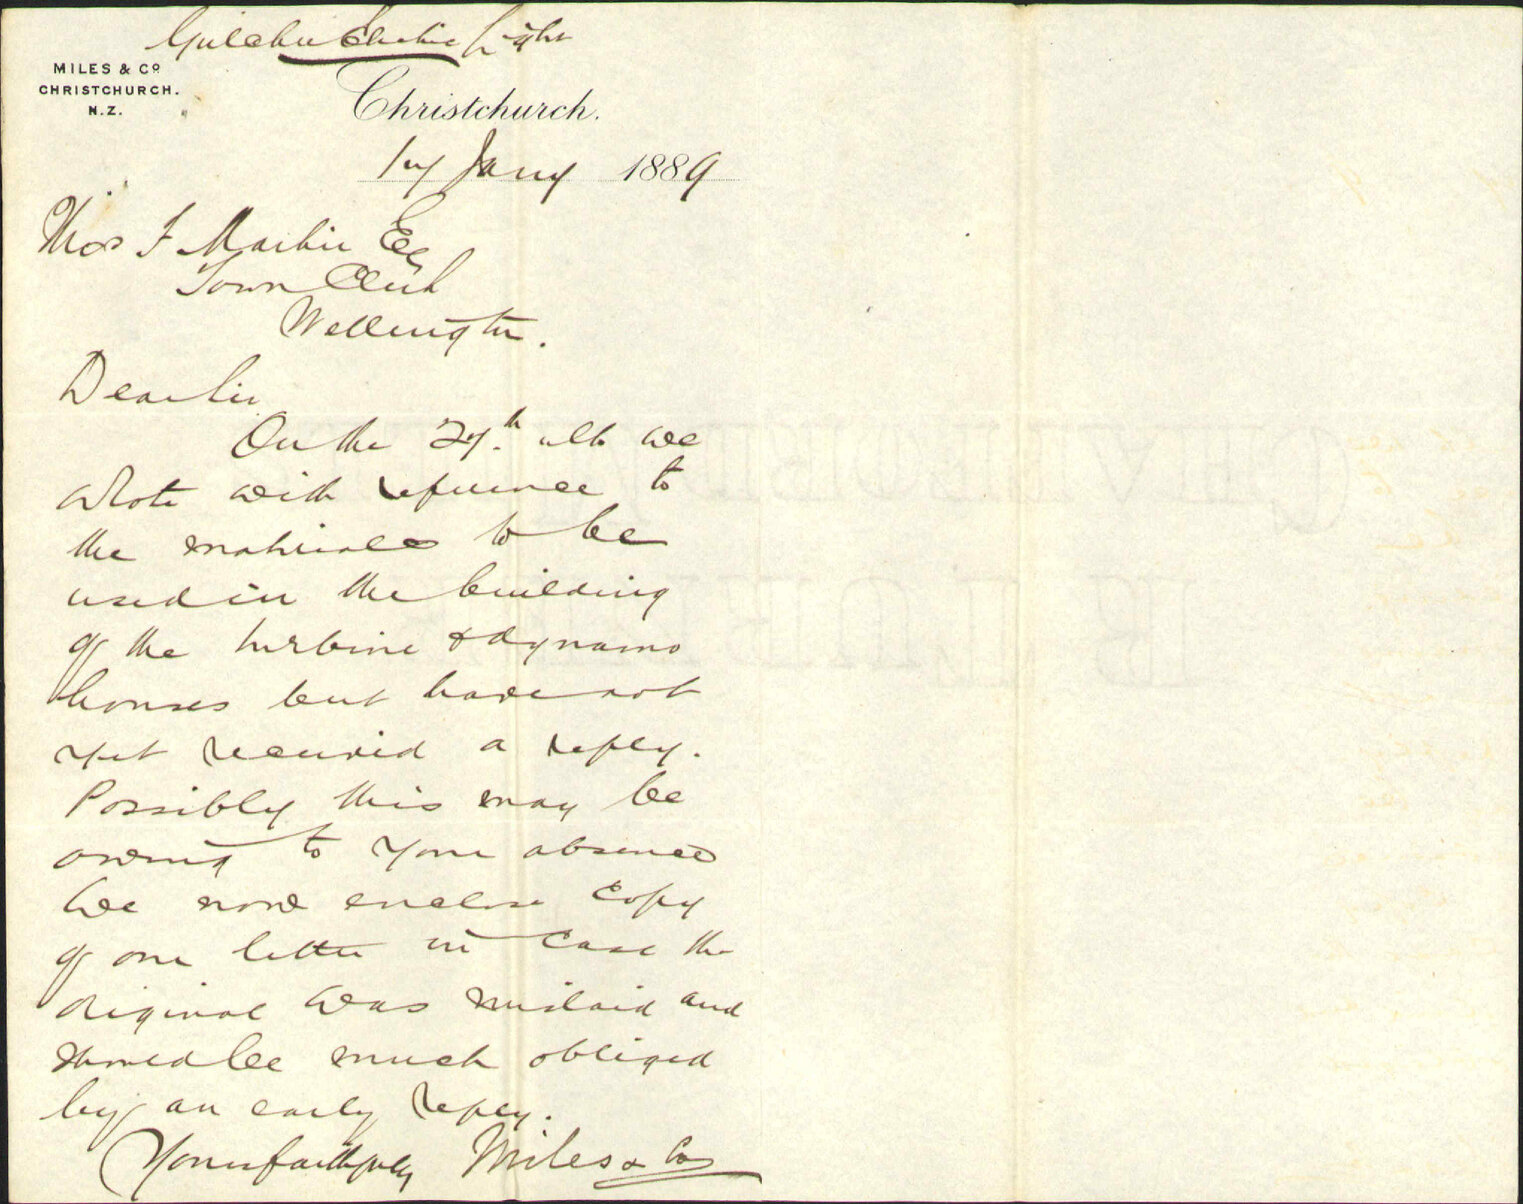 Gülcher Electric Light
MILES & Co
CHRISTCHURCH.
N.Z.
Christchurch.
17 Jany 1889
Thos F Martin Esq
Town Clerk
Wellington.
Dear Sir
On the 27th ulto we
wrote with reference to
the materials to be
used in the building
of the turbine & dynamo
houses but have not
yet received a reply.
Possibly this may be
owing to your absence
We now enclose copy
of our letter in case the
original was mislaid and
should be much obliged
by an early reply.
Yours faithfully Miles & Co